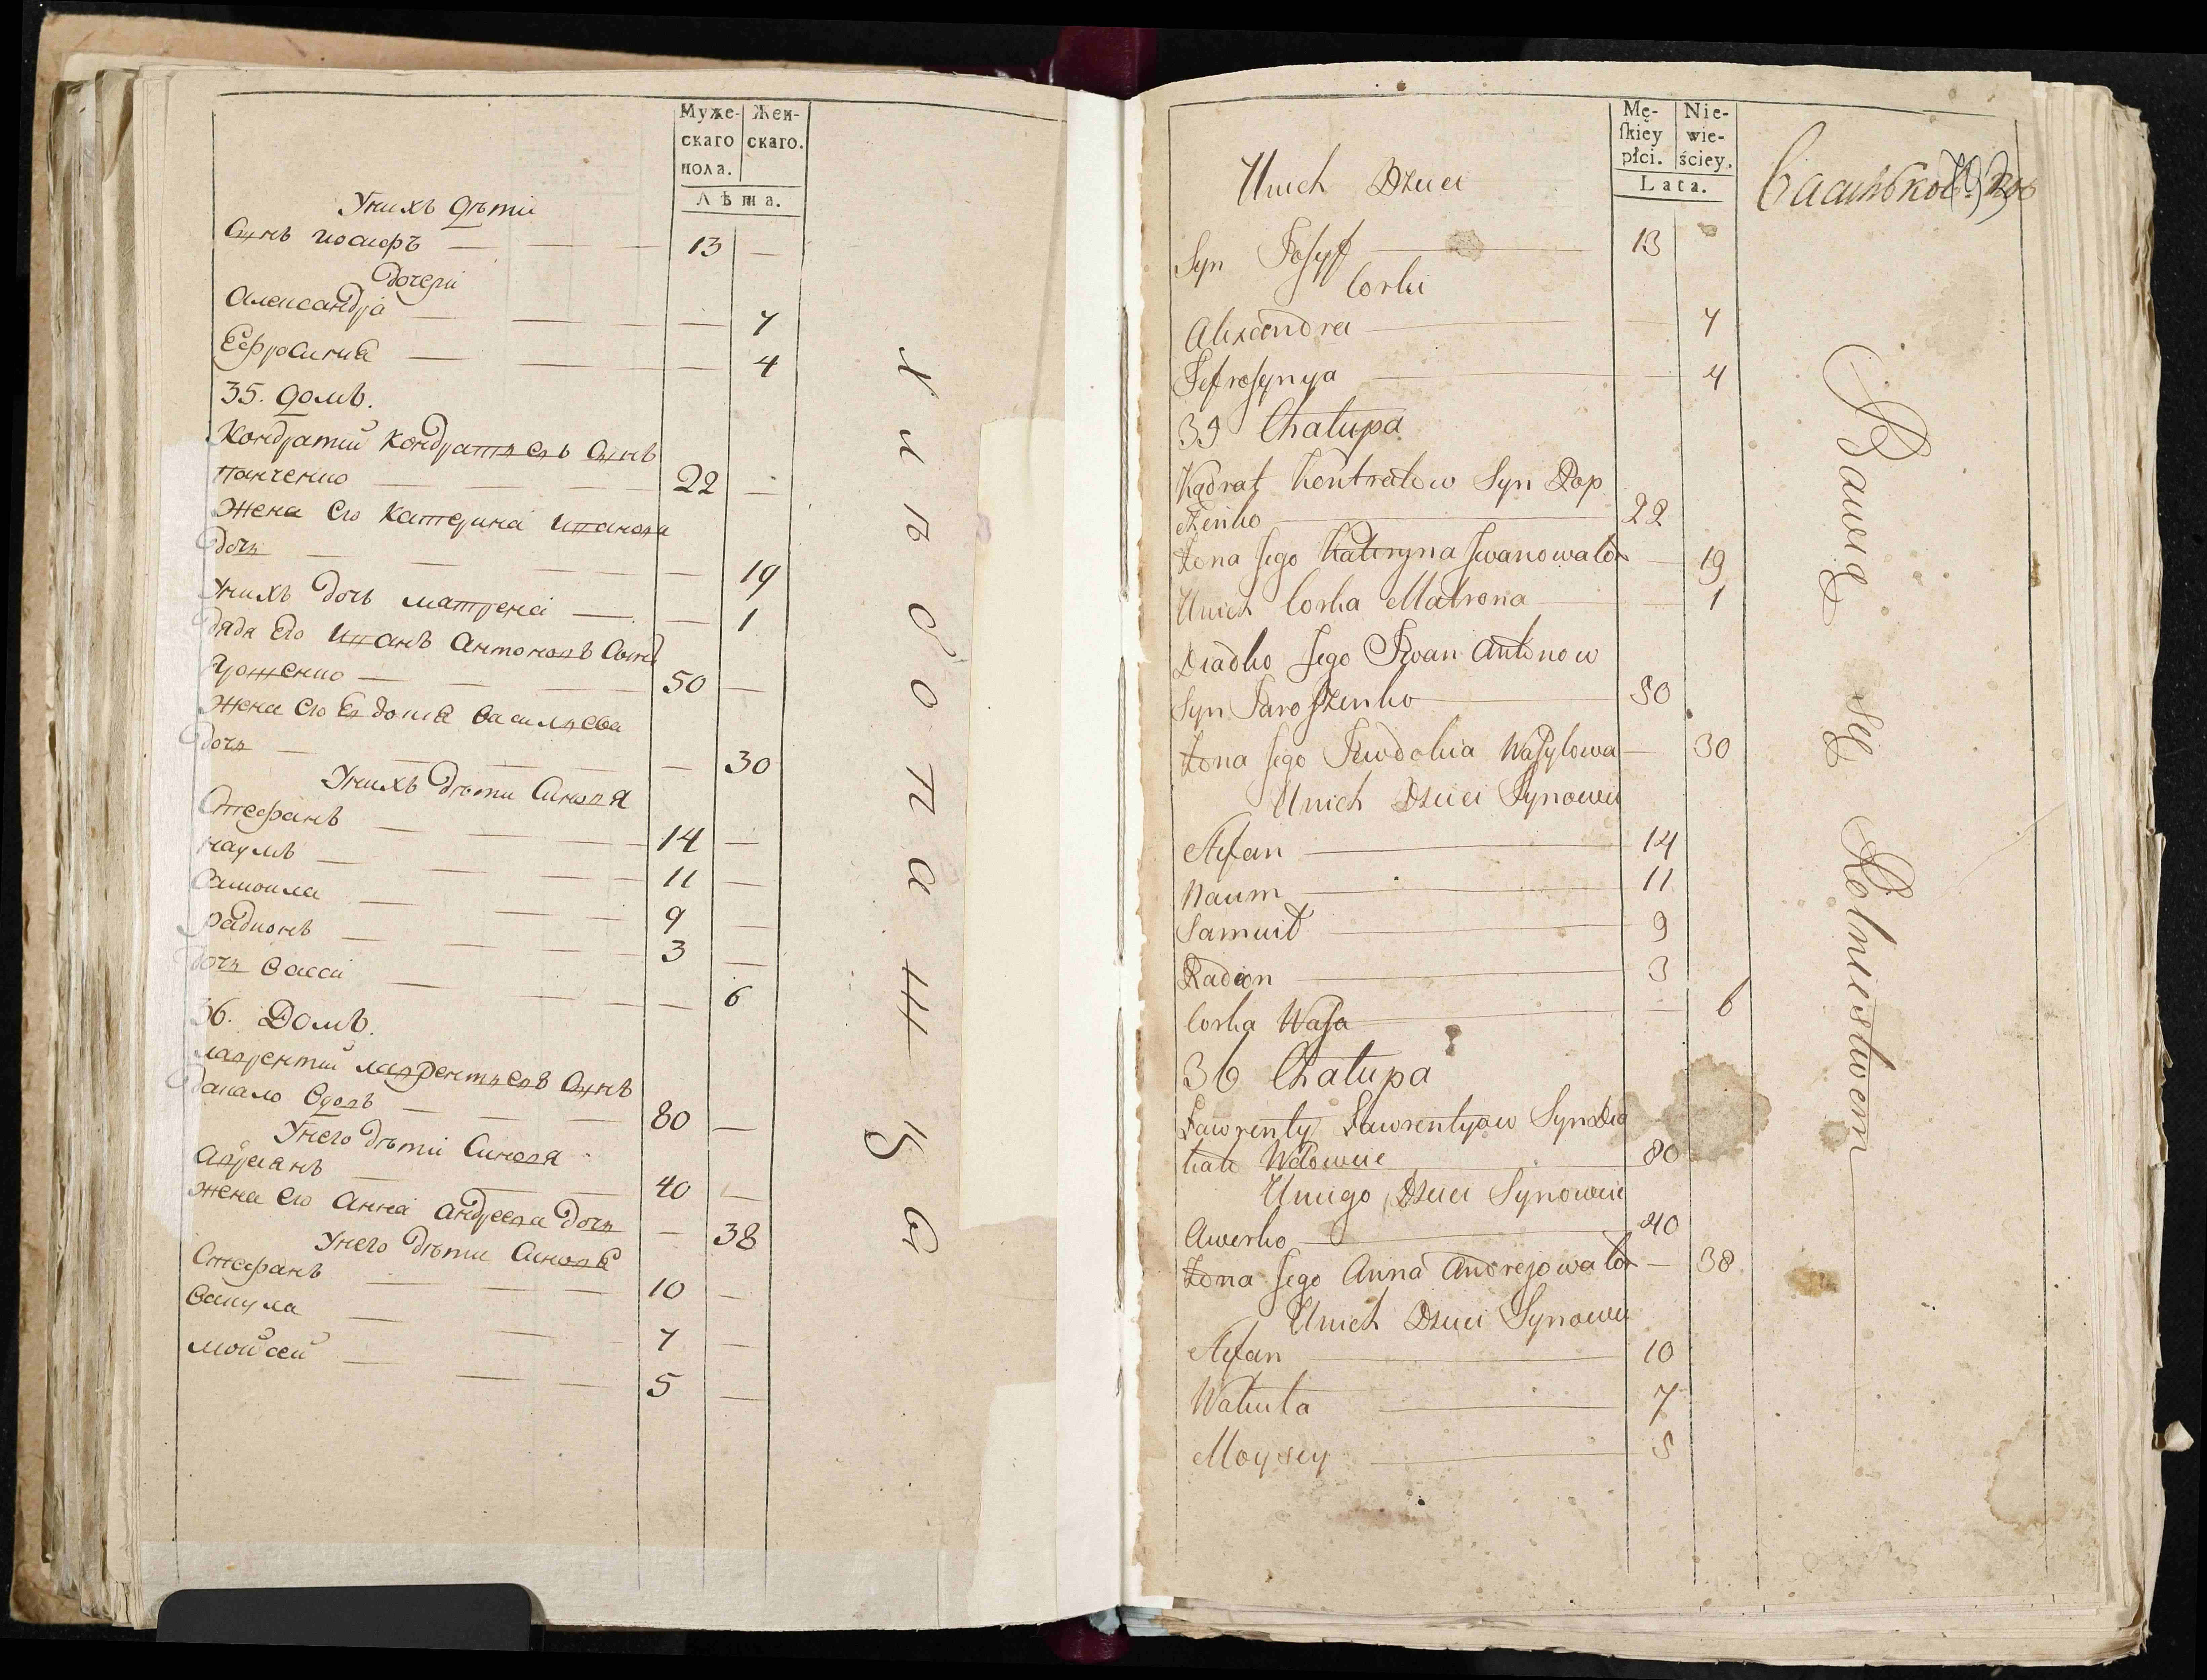 Муже-
скаго
пола.
Жен-
скаго.
Лѣта.
Унихъ дѣти
Сынъ иосифъ 13
дочери
Александра 7
Ефросиния 4
35. домъ.
Кондратий Кондратьевъ Сынъ
панченко 22
Жена Его Катерина Иванова
дочь 19
Унихъ дочь матрена 1
дядя Его Иванъ Антоновъ Сынъ
Ярошенко 50
Жена Его Евдокия Васильева
дочь 30
Унихъ дѣти Синовя
Стефанъ 14
наумъ 11
Самоила 9
радионъ 3
дочь Васса 6
36. Домъ.
лаврентий лаврентьевъ Сынъ
Вдовъ 80
Унего дѣти Синовя
40
Жена Его Анна Андреева дочь 38
Унего дѣти Синовя
Стефанъ 10
Вакула 7
мойсей 5
хлѣбопашцъ
Mę-
ſkiéy
płci.
Nie-
wie-
ściey.
Lata.
Unich Dzieci
Syn Josyf 13
Corki
Alexandra 7
Jefrosynya 4
35 Chałupa
Kądrat Kontratow Syn Pap
czenko 22
Żona Jego Kateryna Iwanowa Cor 19
Unich Corka Matrona 1
Diadko Jego Iwan Antonow
Syn Jaroszenko 50
Żona Jego Jewdokia Wasylowa 30
Unich Dzieci Synowie
Stefan 14
Naum 11
Samuił 9
Radion 3
Corka Wasa 6
36 Chałupa
Ławrenty Ławrentyow Syn
Wdowiec 80
Uniego Dzieci Synowie
Awerko 40
Żona Jego Anna Andrejowa Cor 38
Unich Dzieci Synowie
Stefan 10
Wakuła 7
Moysey 5
Bawią się Rolnictwem